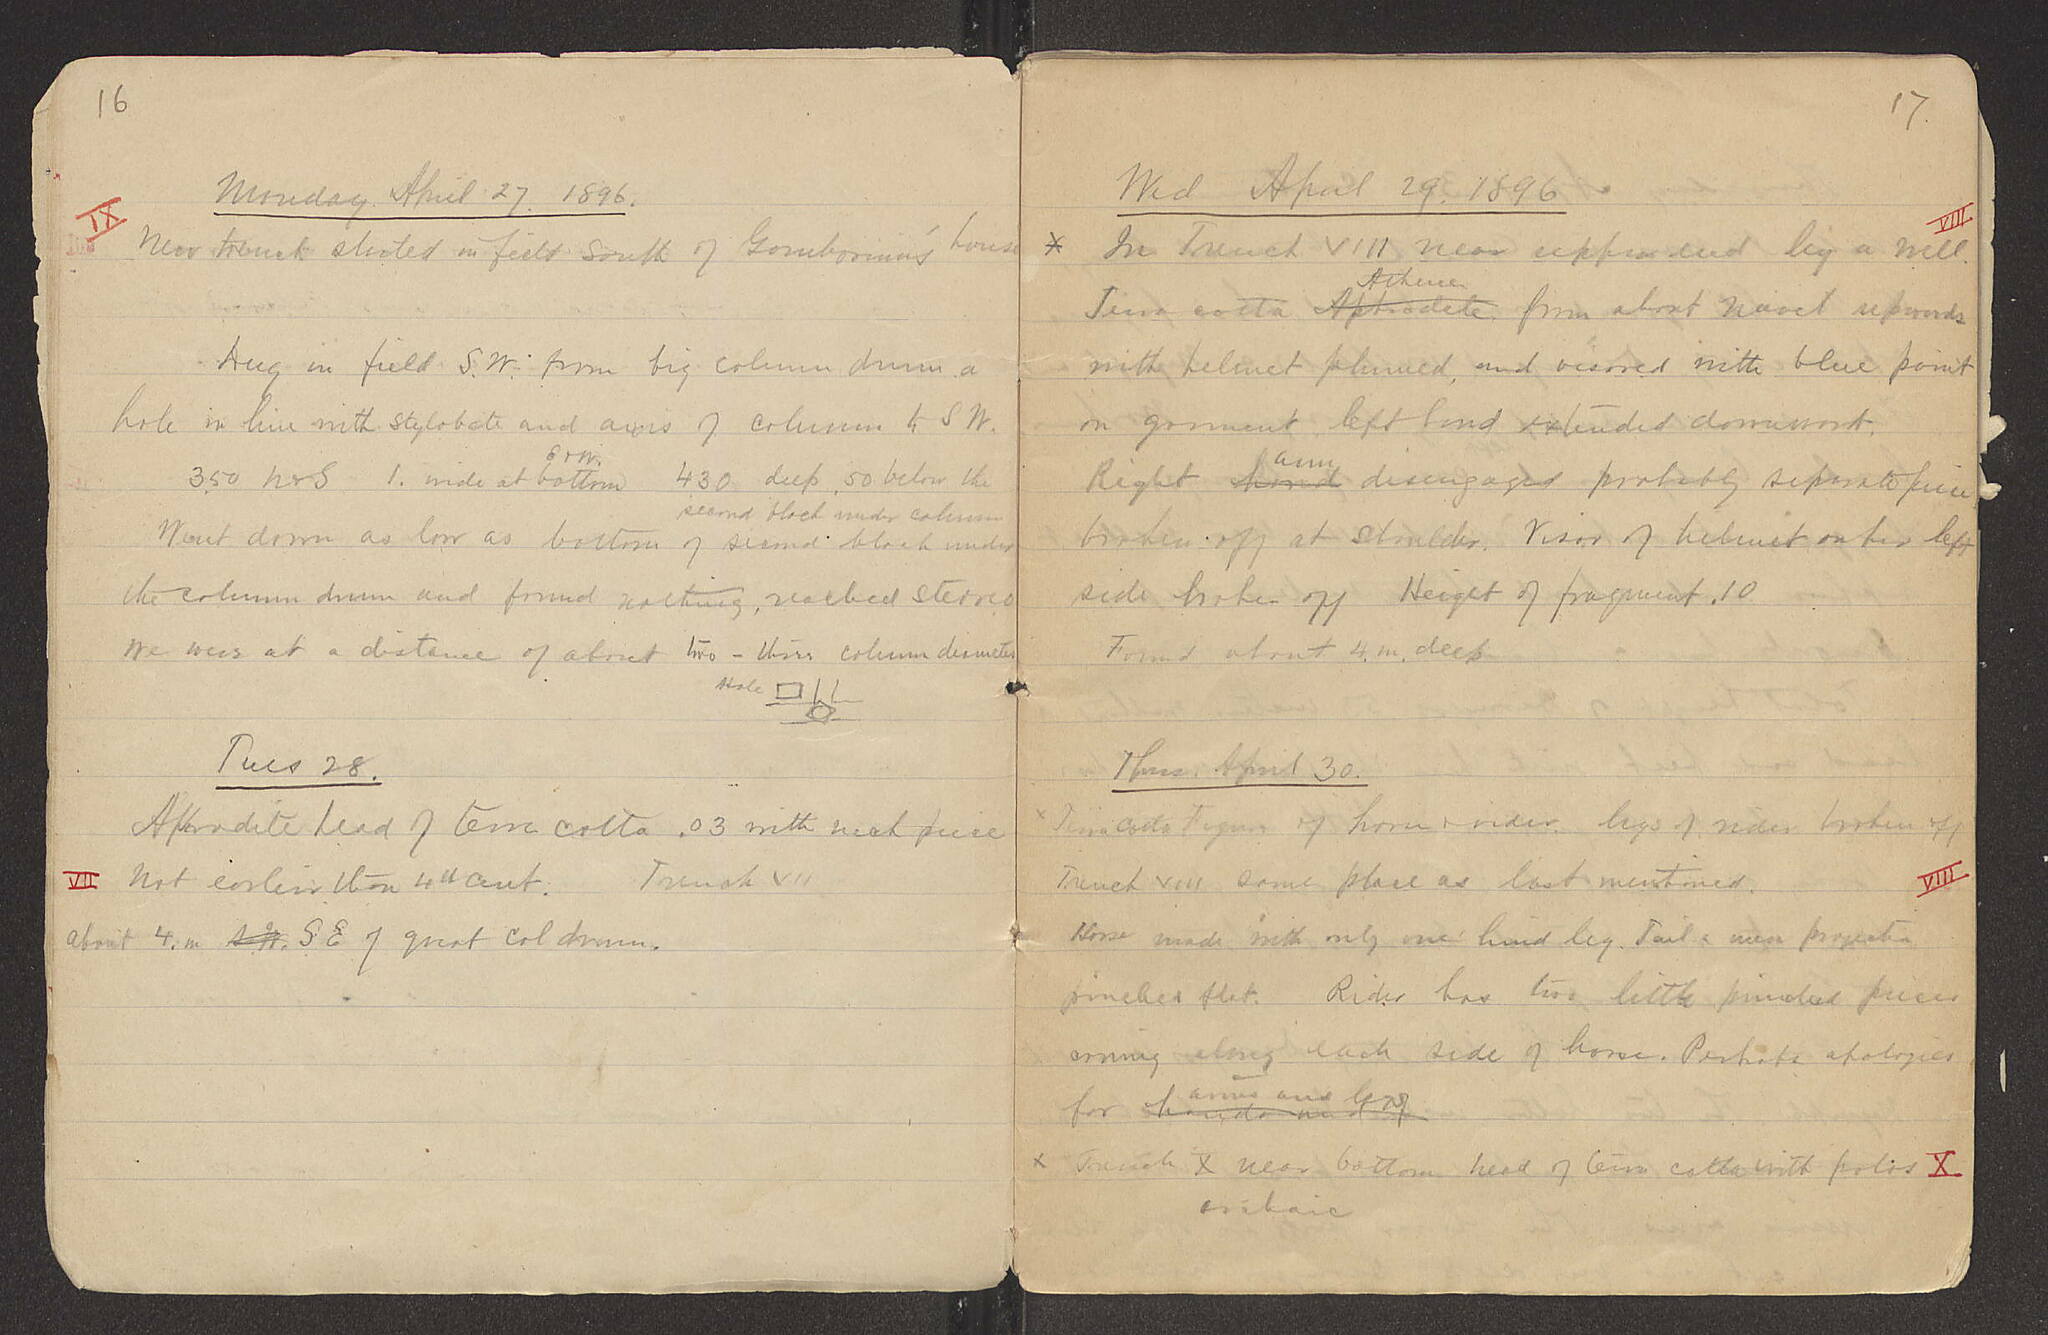 16
Monday April 27. 1896.
IX
New trench started in field South of house
Dug in field S.W. from big column drum a
hole in line with stylobate and axis of column to S W.
E + W.
3.50 N + S 1. wide at bottom 4 30 deep .50 below the
second block under column
Went down as low as bottom of second block under
the column drum and found nothing, reached stereo
We were at a distance of about two - three column diameters
Hole
Tues 28.
Aphrodite head of terra cotta .03 with neck piece
VII
Not earlier than 4th cent. Trench VII
about 4. m S.W. S E of great col drum.
17.
Wed April 29. 1896
VIII
x In Trench VIII near upper end by a well.
Athene
Terra cotta Aphrodite from about navel upwards
with helmet plumed, and visored with blue paint
on garment left hand extended downward.
arm
Right hand disengaged probably separate piece
broken off at shoulder. Visor of helmet on her left
side broken off Height of fragment .10
Found about 4. m. deep
Thurs. April 30.
x Terra Cotta Figure of horse & rider. legs of rider broken off
Trench VIII same place as last mentioned.
VIII
Horse made with only one hind leg. Tail a mere projection
pinched flat. Rider has two little pinched pieces
coming along each side of horse. Perhaps apologies
arms and legs
for hands and
x Trench X near bottom head of terra cotta with polos X
archaic